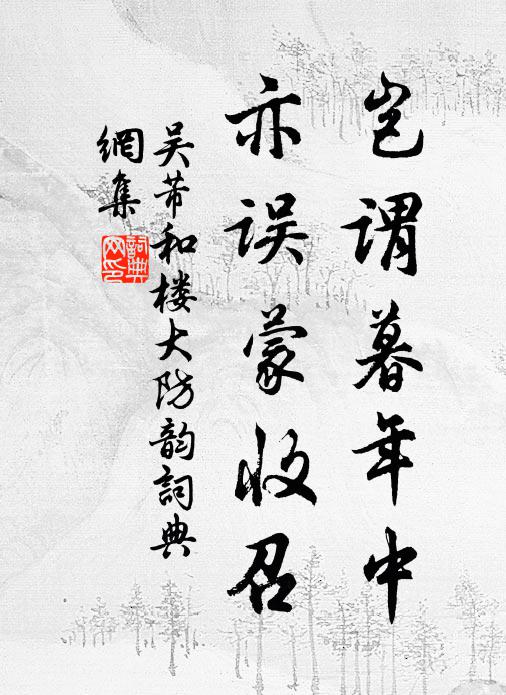 岂谓暮年中
亦误蒙收召
吴芾和楼大防韵词典
網集
詞典網印